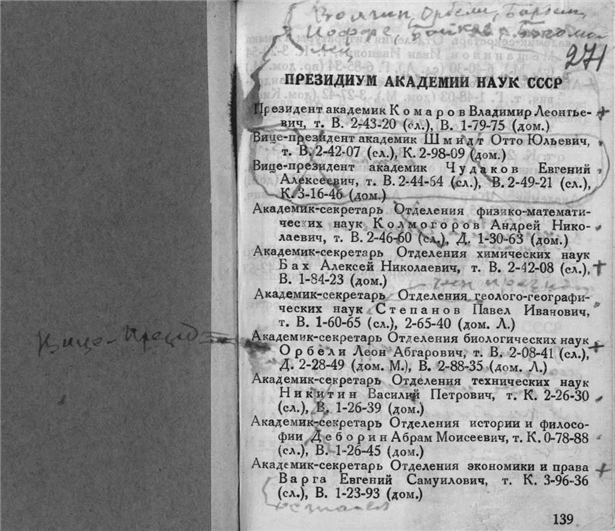 Волгин, Орбели, Байков,
Иоффе,
271
ПРЕЗИДИУМ АКАДЕМИИ НАУК СССР
Президент академик Комаров Владимир Леонтье-
вич, т. В. 2-43-20 (сл.), В. 1-79-75 (дом.)
Вице-президент академик Шмидт Отто Юльевич,
т. В. 2-42-07 (сл.), К. 2-98-09 (дом.)
Вице-президент академик Чудаков Евгений
Алексеевич, т. В. 2-44-64 (сл.), В. 2-49-21 (сл.),
К. 3-16-46 (дом.)
Академик-секретарь Отделения физико-математи-
ческих наук Колмогоров Андрей Нико-
лаевич, т. В. 2-46-60 (сл.), Д. 1-30-63 (дом.)
Академик-секретарь Отделения химических наук
Бах Алексей Николаевич, т. В. 2-42-08 (сл.),
В. 1-84-23 (дом.)
Академик-секретарь Отделения геолого-географи-
ческих наук Степанов Павел Иванович,
т. В. 1-60-65 (сл.), 2-65-40 (дом. Л.)
Вице-Презид
Академик-секретарь Отделения биологических наук
Орбели Леон Абгарович, т. В. 2-08-41 (сл.),
Д. 2-28-49 (дом. М.), В. 2-88-35 (дом. Л.)
Академик-секретарь Отделения технических наук
Никитин Василий Петрович, т. К. 2-26-30
(сл.), В. 1-26-39 (дом.)
Академик-секретарь Отделения истории и филосо-
фии Деборин Абрам Моисеевич, т. К. 0-78-88
(сл.), В. 1-26-45 (дом.)
Академик-секретарь Отделения экономики и права
Варга Евгений Самуилович, т. К. 3-96-36
(сл.), В. 1-23-93 (дом.)
139